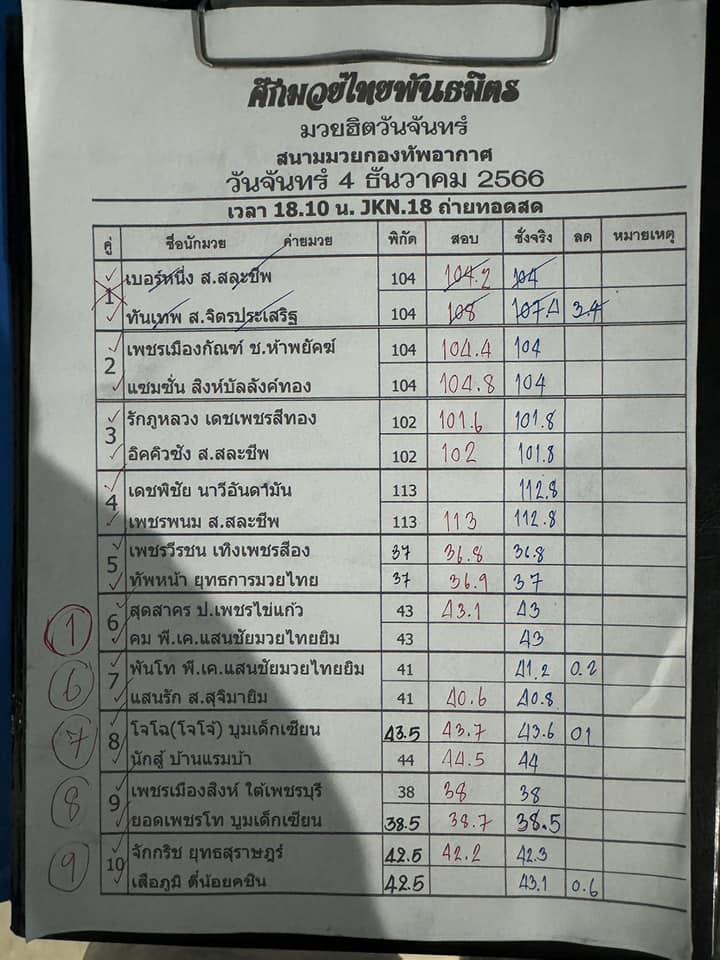 ศึกมวยไทยพันธมิตร
มวยฮิตวันจันทร์
สนามมวยกองทัพอากาศ
วันจันทร์ 4 ธันวาคม 2566
เวลา 18.10 น. JKN.18 ถ่ายทอดสด
คู่ ชื่อนักมวย ค่ายมวย พิกัด สอบ ชั่งจริง ลด หมายเหตุ
1 เบอร์หนึ่ง ส.สละชีพ 104 104.2 104
ทันเทพ ส.จิตรประเสริฐ 104 108 107.4 3.4
2 เพชรเมืองกัณฑ์ ช.ห้าพยัคฆ์ 104 104.4 104
แซมซั่น สิงห์บัลลังค์ทอง 104 104.8 104
3 รักภูหลวง เดชเพชรสีทอง 102 101.6 101.8
อิคคิวซัง ส.สละชีพ 102 102 101.8
4 เดชพิชัย นาวีอันดามัน 113 112.8
เพชรพนม ส.สละชีพ 113 113 112.8
5 เพชรวีรชน เทิงเพชรสีอง 37 36.8 36.8
ทัพหน้า ยุทธการมวยไทย 37 36.9 37
1 6 สุดสาคร ป.เพชรไข่แก้ว 43 43.1 43
คม พี.เค.แสนชัยมวยไทยยิม 43 43
6 7 พันโท พี.เค.แสนชัยมวยไทยยิม 41 41.2 0.2
แสนรัก ส.สุจิมายิม 41 40.6 40.8
7 8 โจโฉ(โจโจ้) บูมเด็กเซียน 43.5 43.7 43.6 01
นักสู้ บ้านแรมบ้า 44 44.5 44
8 9 เพชรเมืองสิงห์ ใต้เพชรบุรี 38 38 38
ยอดเพชรโท บูมเด็กเซียน 38.5 38.7 38.5
9 10 จักกริช ยุทธสุราษฎร์ 42.5 42.2 42.3
เสือภูมิ ตี๋น้อยคชิน 42.5 43.1 0.6